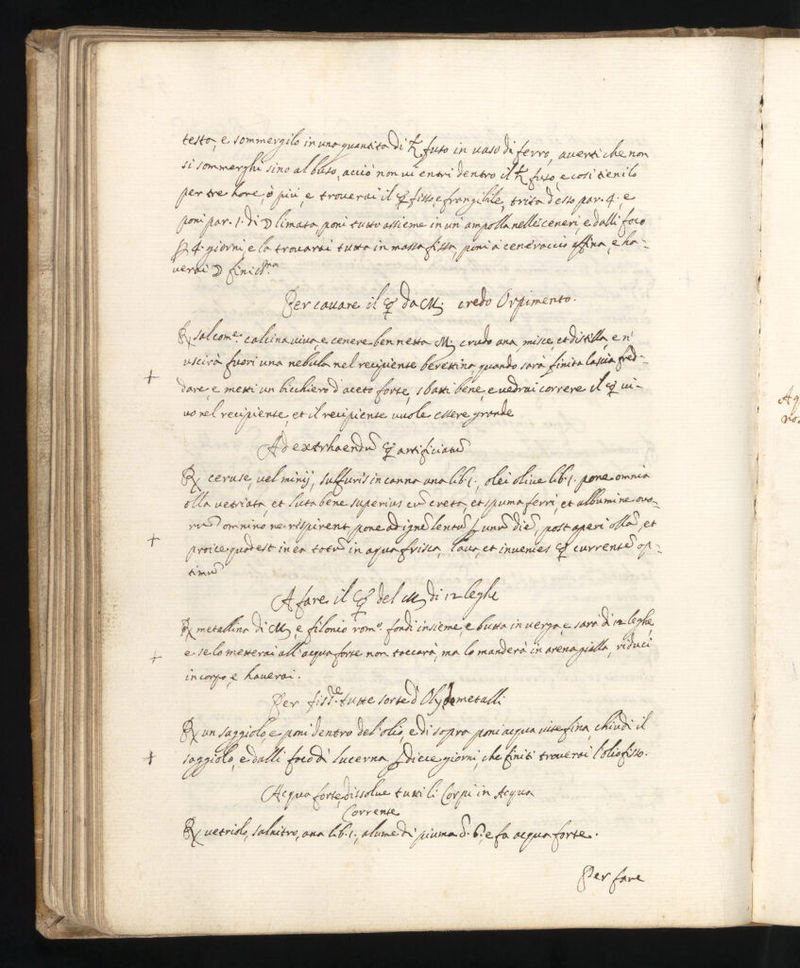 testo, e sommergilo in una quantita di ♄ fuso in vaso di ferro, averti che non
si sommerghi sino al buso, acciò non vi entri dentro il ♄ fuso, e così tienilo
per tre hore, ò più, e troverai il ☿ fisso, e frangibile, trita d'esso par. 4. e
poni par. 1. di ☽ limata poni tutto assieme in un'ampolla nelle ceneri, e dalli foco
p 4. giorni, e la trovarai tutta in massa fissa, poni à ceneraccio affina, e ha-
verai ☽ finiss.ma
Per cavare il ☿ da ♏ credo Orpimento.
℞ sal com.e calcina viva, e cenere ben netta ♏ crudo ana, misce, et distilla, e n'
uscirà fuori una nebula nel recipiente berettina, quando sarà finita lascia fred-
dare, e metti un bicchiero d'aceto forte, sbatti bene, e vedrai correre il ☿ vi-
vo nel recipiente, et il recipiente vuole essere grande
Ad extrhaendũ ☿ artificiatũ
℞ ceruse, vel minij, sulfuris in canna ana lib. 1. olei olive lib. 1. pone omnia
olla vetriata, et luta bene superius cũ creta, et spuma ferri, et albumine ovo-
rũ omnino ne respirent, pone ad ignẽ lentũ p unũ diẽ, post aperi ollã, et
proice quod est in ea totũ in aqua frisca, lava, et invenies ☿ currentẽ op-
timũ
A fare il ☿ del ♏ di 12 leghe
℞ metallina di ♏, e filonio rom.o fondi insieme, e butta in verga, e sarà di 12 leghe
e se lo metterai all'acqua forte non toccarà, ma lo manderà in arena gialla, riduci
in corpo, e haverai.
Per fissare tutte sorte d'Olij de metalli
℞ un saggiolo, e poni dentro del'olio, e di sopra poni acqua vite fina, chiudi il
saggiolo, e dalli foco di lucerna p diece giorni, che finiti troverai l'olio fisso.
Acqua forte, dissolve tutti li Corpi in Acqua
Corrente
℞ vetriolo, salnitro, ana lib. 1., alume di piuma 6., e fa acqua forte.
Per fare